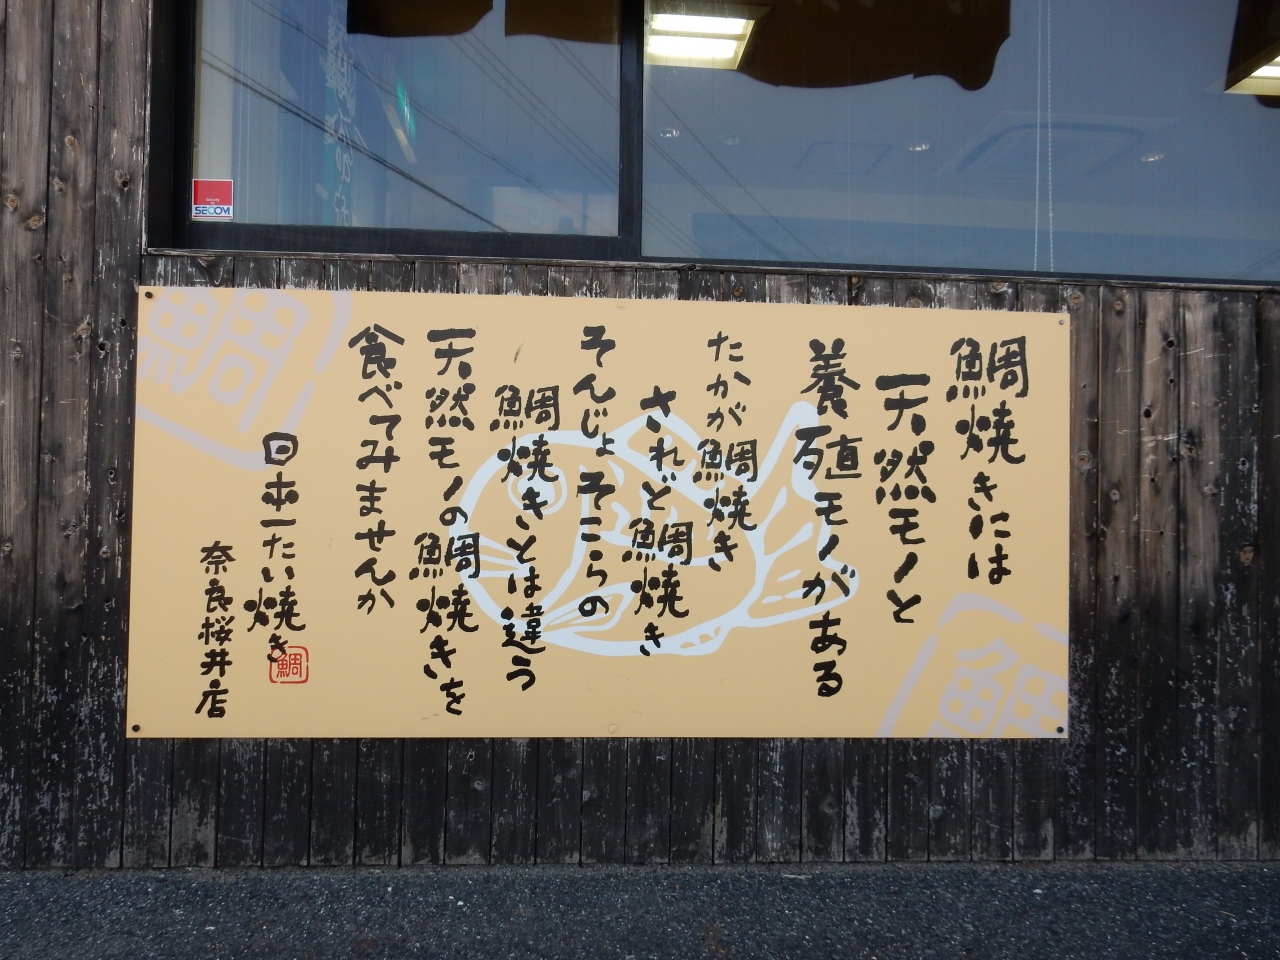 鯛焼きには
天然モノと
養殖モノがある
たかが鯛焼き
されど鯛焼き
そんじょそこらの
鯛焼きとは違う
天然モノの鯛焼きを
食べてみませんか
日本一たい焼き
鯛
奈良桜井店
鯛
鯛
Security
by
SECOM